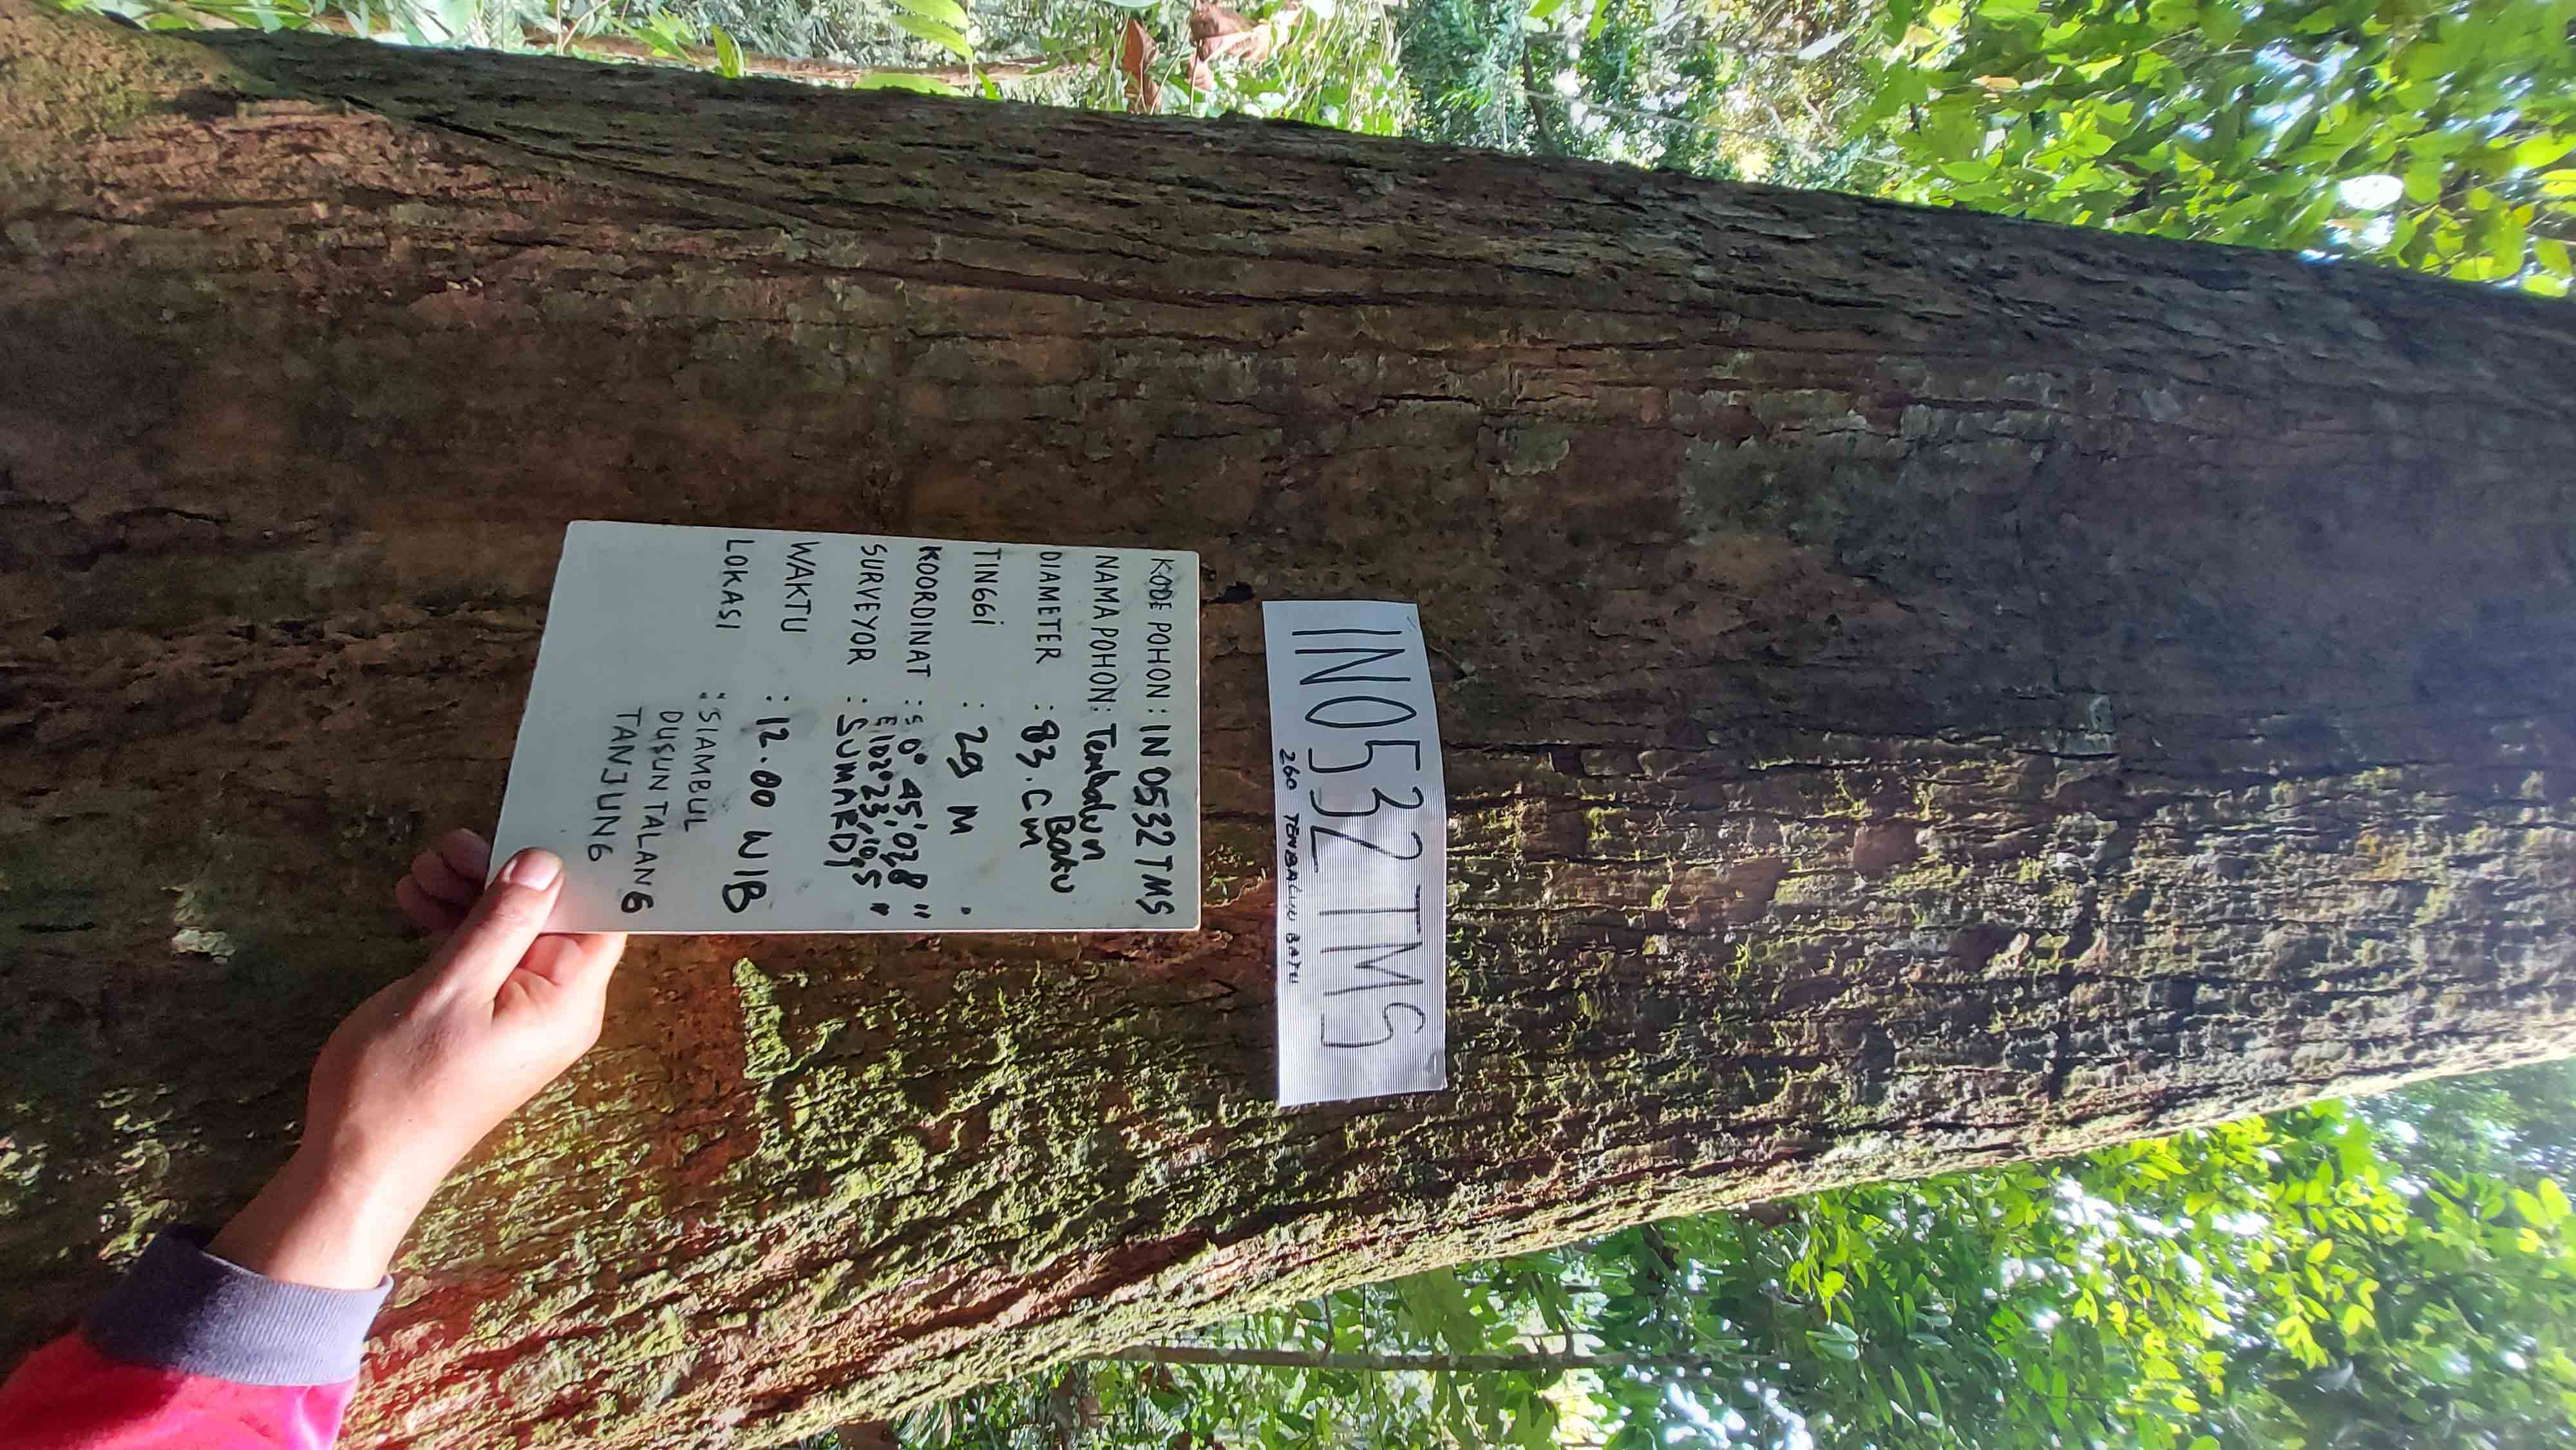 IN0532TMS
260 TEMBALUN BATU
KODE POHON : IN 0532 TMS
NAMA POHON : Tembalun
Batu
DIAMETER : 83. CM
TINGGI : 29 M
KOORDINAT : S 0° 45' 07,8 "
E 102° 23, 10,5 "
SURVEYOR : SUMARDI
WAKTU : 12.00 WIB
LOKASI : SIAMBUL
DUSUN TALANG
TANJUNG